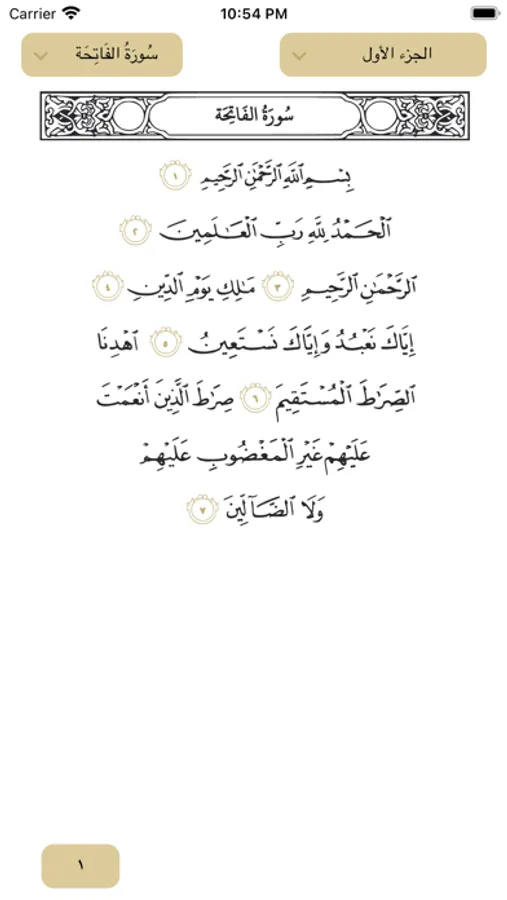 Carrier 10:54 PM
سُورَةُ الفَاتِحَة الجزء الأول
سُورَةُ الفَاتِحَة
بِسْمِ ٱللَّهِ ٱلرَّحْمَٰنِ ٱلرَّحِيمِ ١
ٱلْحَمْدُ لِلَّهِ رَبِّ ٱلْعَٰلَمِينَ ٢
ٱلرَّحْمَٰنِ ٱلرَّحِيمِ ٣ مَٰلِكِ يَوْمِ ٱلدِّينِ ٤
إِيَّاكَ نَعْبُدُ وَإِيَّاكَ نَسْتَعِينُ ٥ ٱهْدِنَا
ٱلصِّرَٰطَ ٱلْمُسْتَقِيمَ ٦ صِرَٰطَ ٱلَّذِينَ أَنْعَمْتَ
عَلَيْهِمْ غَيْرِ ٱلْمَغْضُوبِ عَلَيْهِمْ
وَلَا ٱلضَّآلِّينَ ٧
١